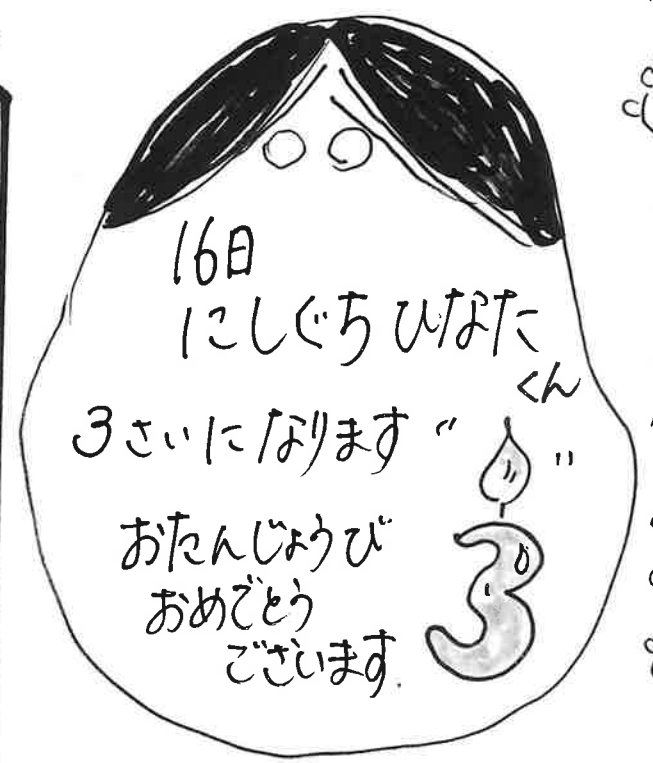 16日
にしぐち ひなた
くん
3さいになります
おたんじょうび
おめでとう
ございます.
3